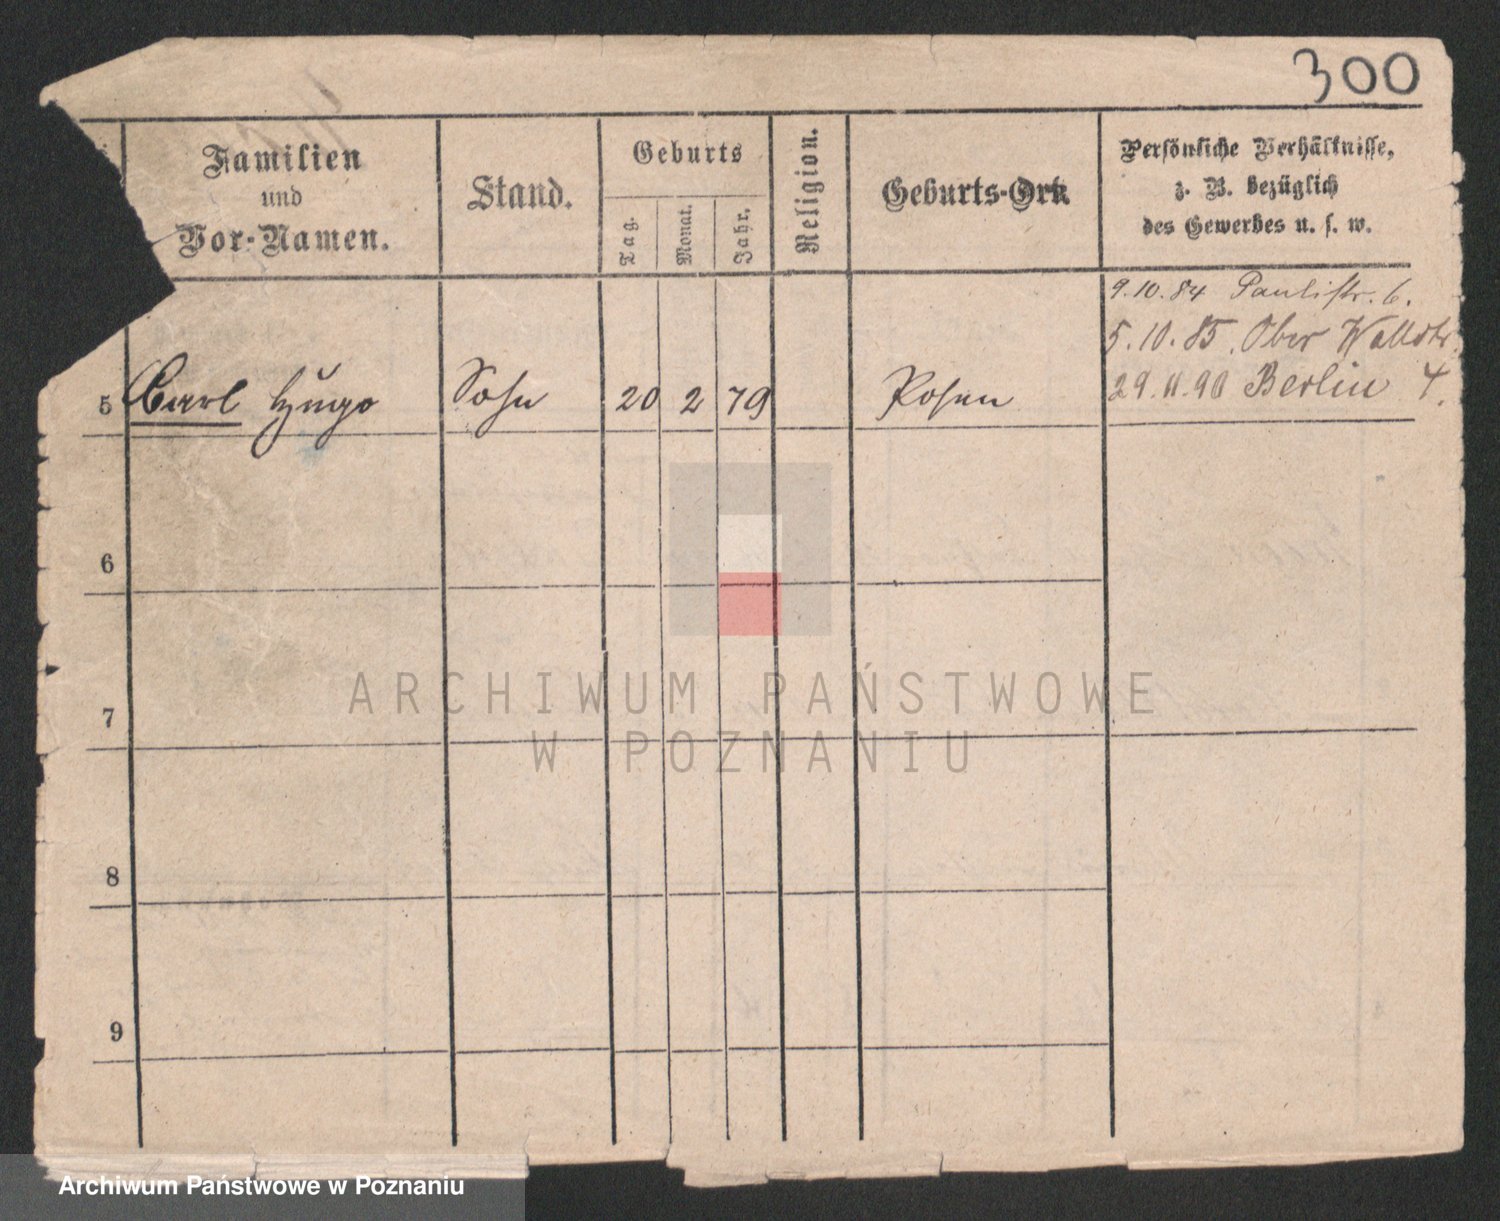 300
Familien
und
Vor-Namen.
Stand.
Geburts
Tag.
Monat.
Jahr.
Religion.
Geburts-Ort.
Persönliche Verhältnisse,
z. B. bezüglich
des Gewerbes u. s. w.
9.10.84 Paulistr. 6.
5.10.85. Ober Wallstr.
29.11.90 Berlin
5 Carl Hugo Sohn 20 2 79 Posen
6
7
8
9
ARCHIWUM PAŃSTWOWE
W POZNANIU
Archiwum Państwowe w Poznaniu